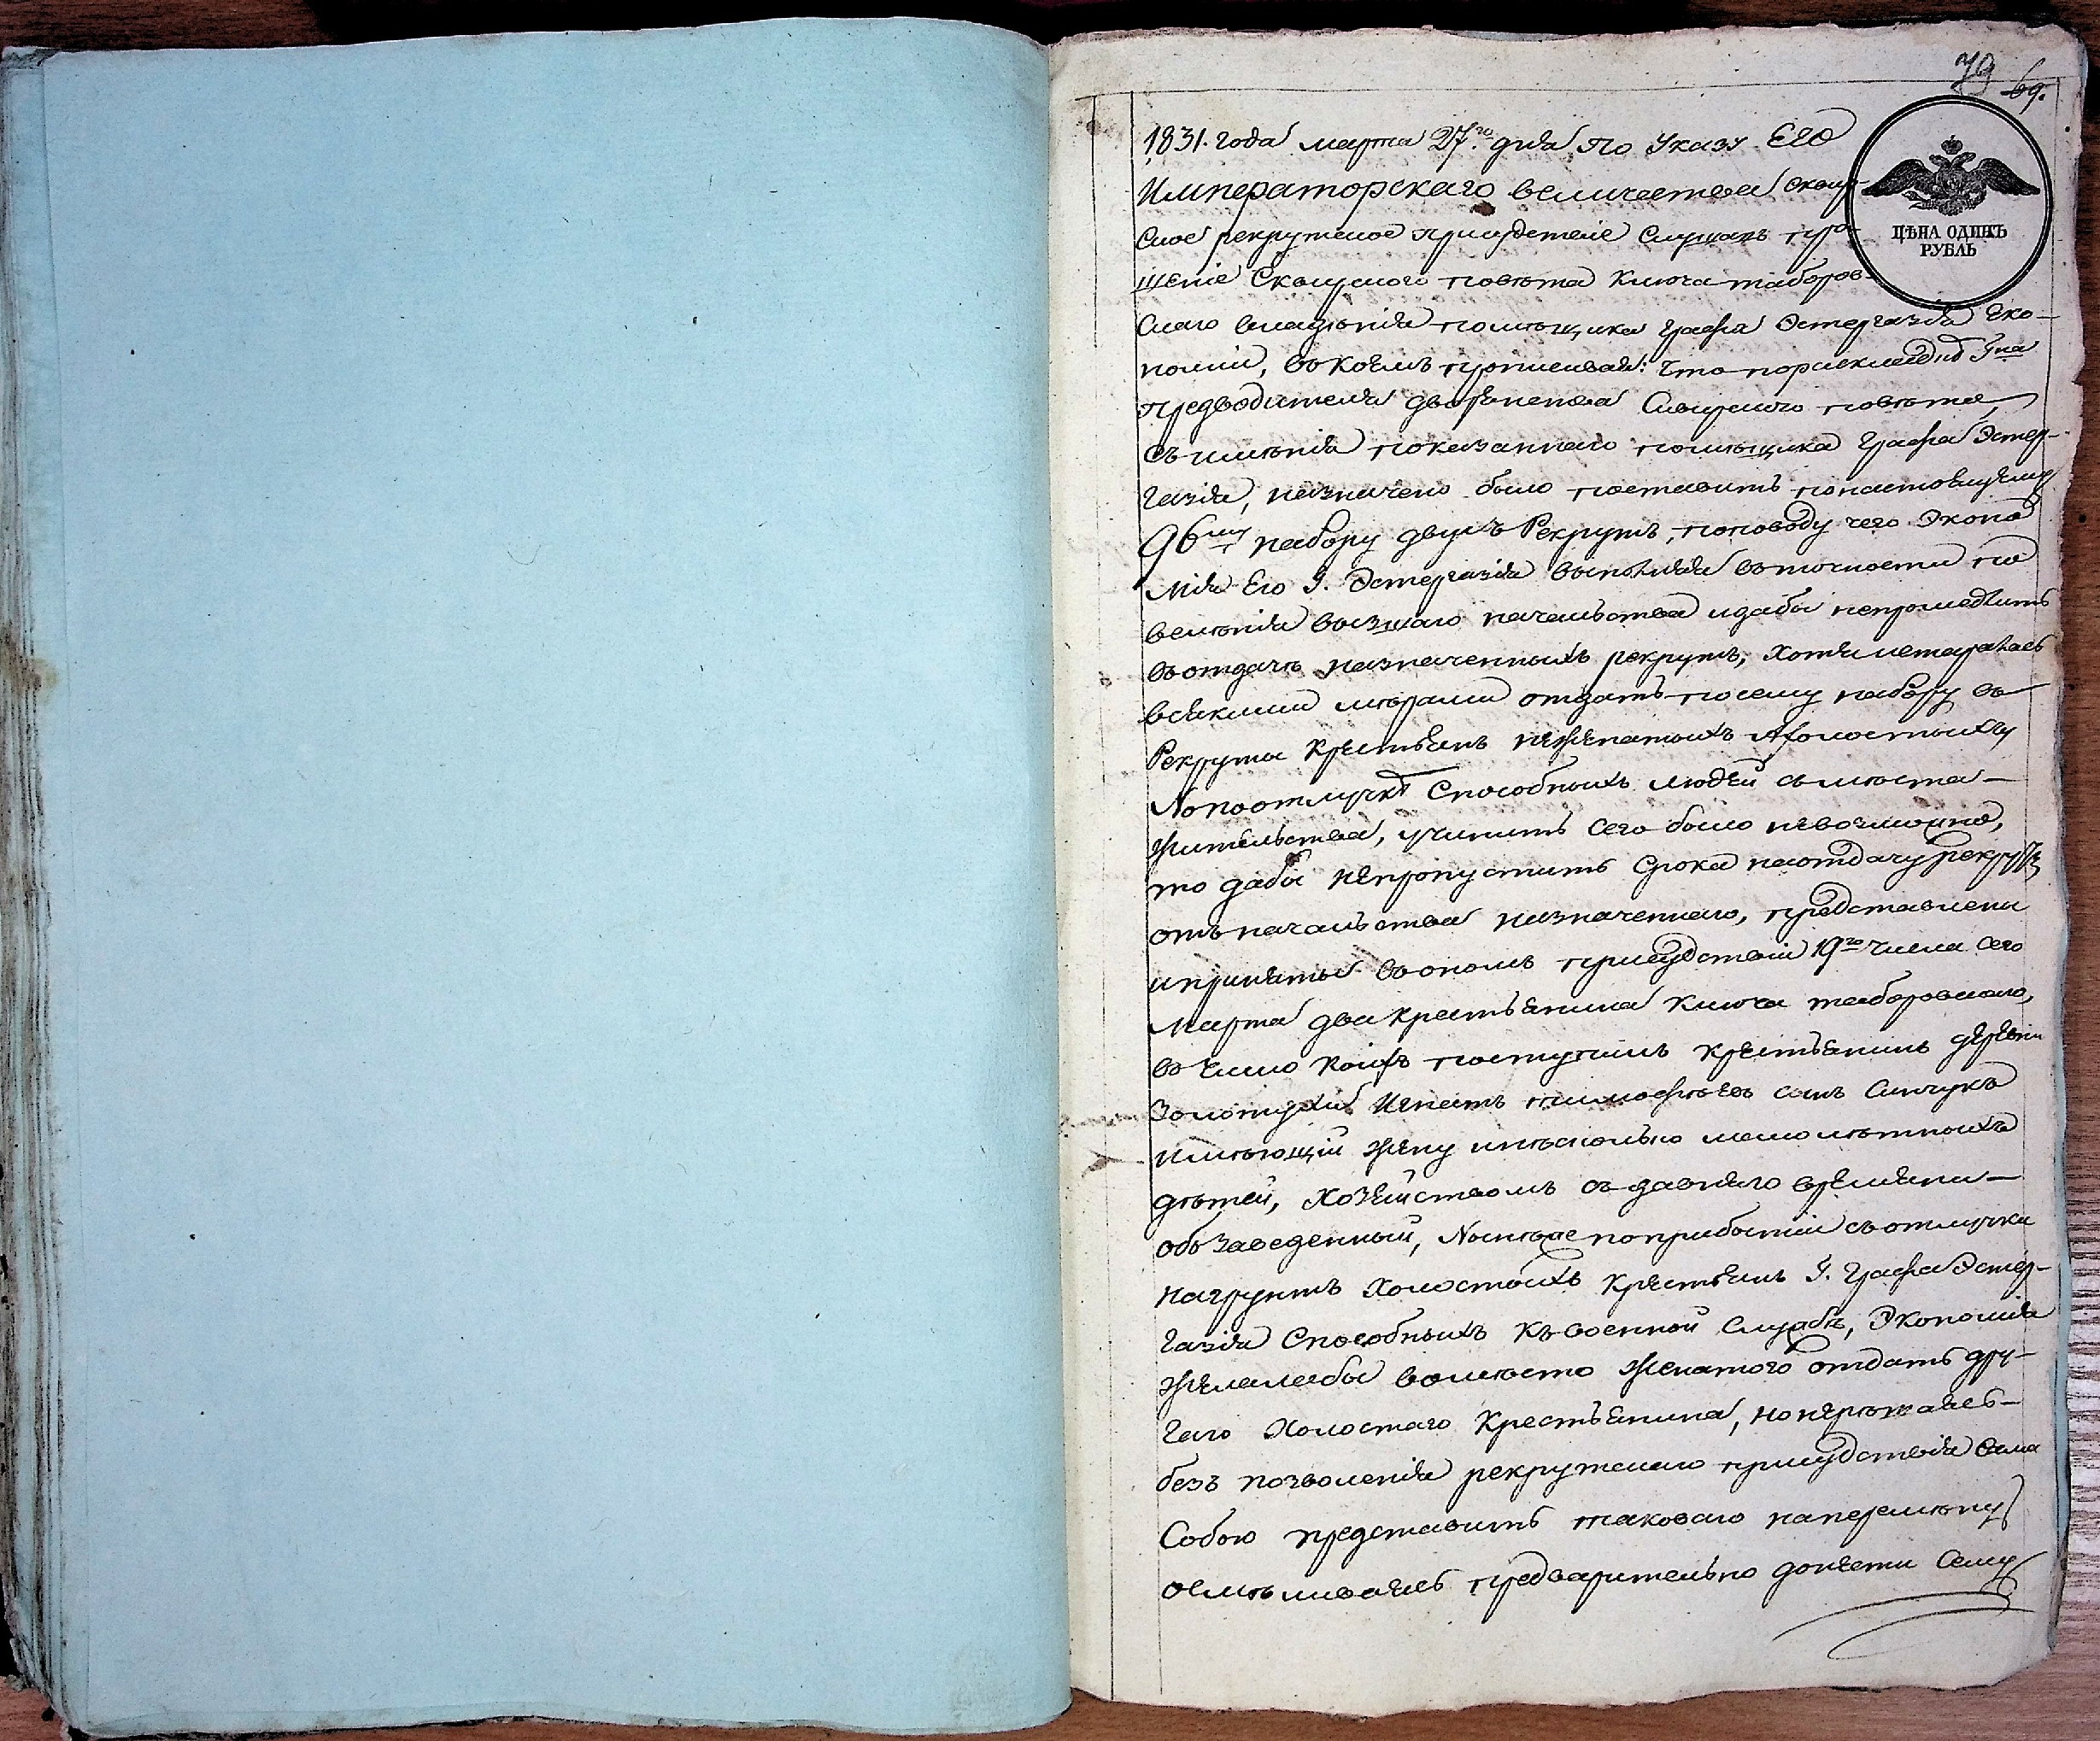 79
69.
1831. года марта 27.го дня по Указу Его
Императорскаго величества сквир-
ское рекрутское присудствіе слушавъ про-
ЦѢНА ОДИНЪ
РУБЛЬ
шеніе Сквирского повѣта Ключа таборов-
скаго владѣнія помѣщика графа Эстергазія Эко-
номіи, въ коемъ прописывая: Что по раскладкѣ Гна
предводителя дворянства Сквирского повѣта,
съ имѣнія показаннаго помѣщика Графа Эстер-
газія, назначено было поставить по настоящему
96му набору двухъ Рекрутъ, по поводу чего Эконо
мія Его Г. Эстергазія выполняя въ точности по
велѣнія высшаго начальства и дабы непромедлить
въ отдачѣ назначенныхъ рекрутъ, хотя и старалась
всякими мѣрами отдать по сему набору въ
Рекруты Крестьянъ неженатыхъ и холостыхъ,
Но по отлучкѣ Способныхъ людей съ мѣста-
жительства, учинить сего было невозможно,
то дабы непропустить Срока на отдачу рекрутъ
отъ начальства назначеннаго, представлени
и приняты въ ономъ присудствіи 19го числа сего
Марта два крестьянина Ключа таборовскаго,
въ число коихъ поступилъ крестьянинъ деревни
Золотухи Игнатъ тимофѣевъ сынъ Синчукъ
имѣющій жену и нѣсколько малолѣтныхъ
дѣтей, хозяйствомъ съ давняго времяни-
обзаведенный, Нынѣже по прибытіи съ отлучки
на грунтъ холостыхъ Крестьянъ Г. Графа Эстер-
газія Способныхъ къ военной Службѣ, Экономія
желалабы вомѣсто женатого отдать дру-
гаго Холостаго Крестьянина, но нерѣшаясь-
безъ позволенія рекрутскаго присудствія сама
Собою представить таковаго на перемѣну
осмѣливаясь предварительно донести Сему